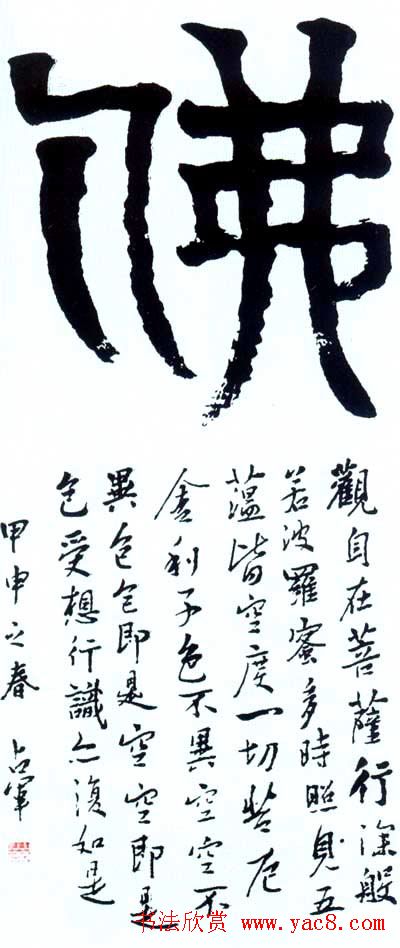 佛
觀自在菩薩行深般
若波羅蜜多時照見五
蘊皆空度一切苦厄
舍利子色不異空空不
異色色即是空空即是
色受想行識亦復如是
甲申之春 占軍
书法欣赏 www.yac8.com